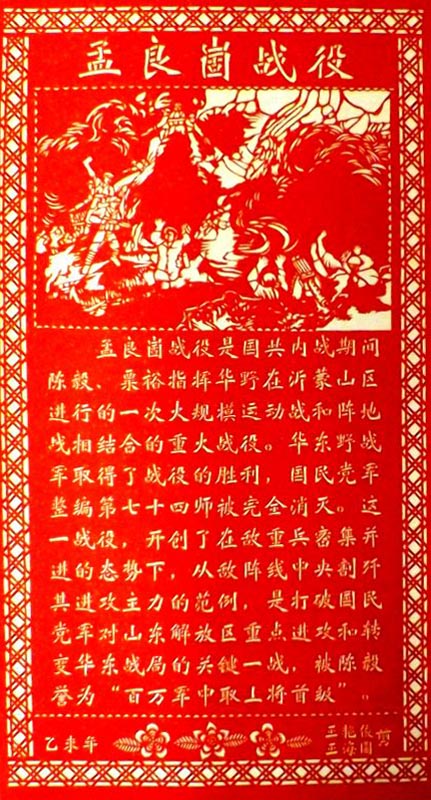 孟良崮战役
孟良崮战役是国共内战期间
陈毅、粟裕指挥华野在沂蒙山区
进行的一次大规模运动战和阵地
战相结合的重大战役。华东野战
军取得了战役的胜利，国民党军
整编第七十四师被完全消灭。这
一战役，开创了在敌重兵密集并
进的态势下，从敌阵线中央割歼
其进攻主力的范例，是打破国民
党军对山东解放区重点进攻和转
变华东战局的关键一战，被陈毅
誉为“百万军中取上将首级”。
乙未年
王艳俊
王海国
剪